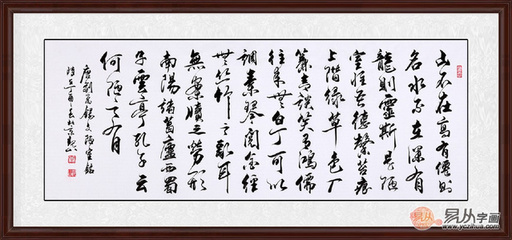 山不在高有僊則
名水不在深有
龍則靈斯是陋
室惟吾德馨苔痕
上階綠草色入
簾青談笑有鴻儒
往來無白丁可以
調素琴閱金經
無丝竹之亂耳
無案牘之勞形
南陽諸葛廬西蜀
子雲亭孔子云
何陋之有
唐劉禹錫文陋室銘
易从字画
www.yczihua.com